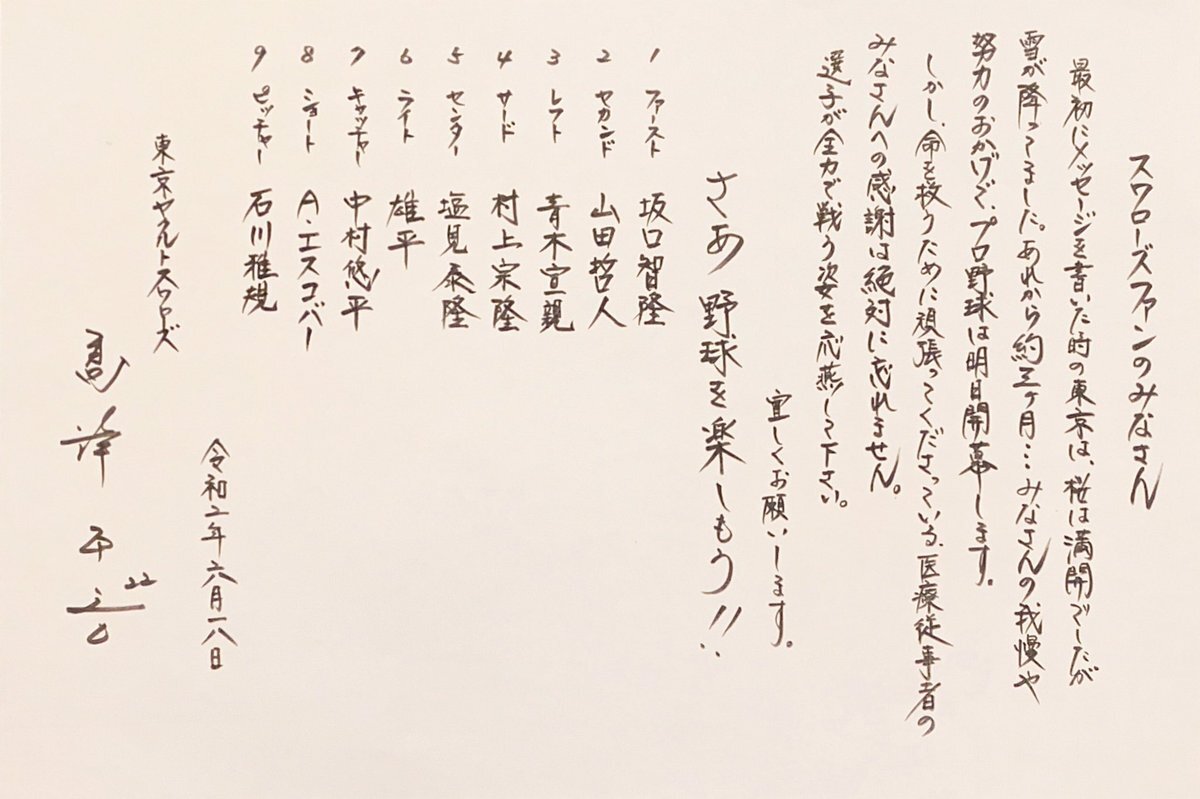 スワローズファンのみなさん
最初にメッセージを書いた時の東京は、桜は満開でしたが
雪が降ってました。あれから約三ヶ月…みなさんの我慢や
努力のおかげで、プロ野球は明日開幕します。
しかし、命を救うために頑張ってくださっている、医療従事者の
みなさんへの感謝は絶対に忘れません。
選手が全力で戦う姿を応燕して下さい。
宜しくお願いします。
さあ 野球を楽しもう!!
1 ファースト 坂口智隆
2 セカンド 山田哲人
3 レフト 青木宣親
4 サード 村上宗隆
5 センター 塩見泰隆
6 ライト 雄平
7 キャッチャー 中村悠平
8 ショート A・エスコバー
9 ピッチャー 石川雅規
令和二年六月一八日
東京ヤクルトスワローズ
22